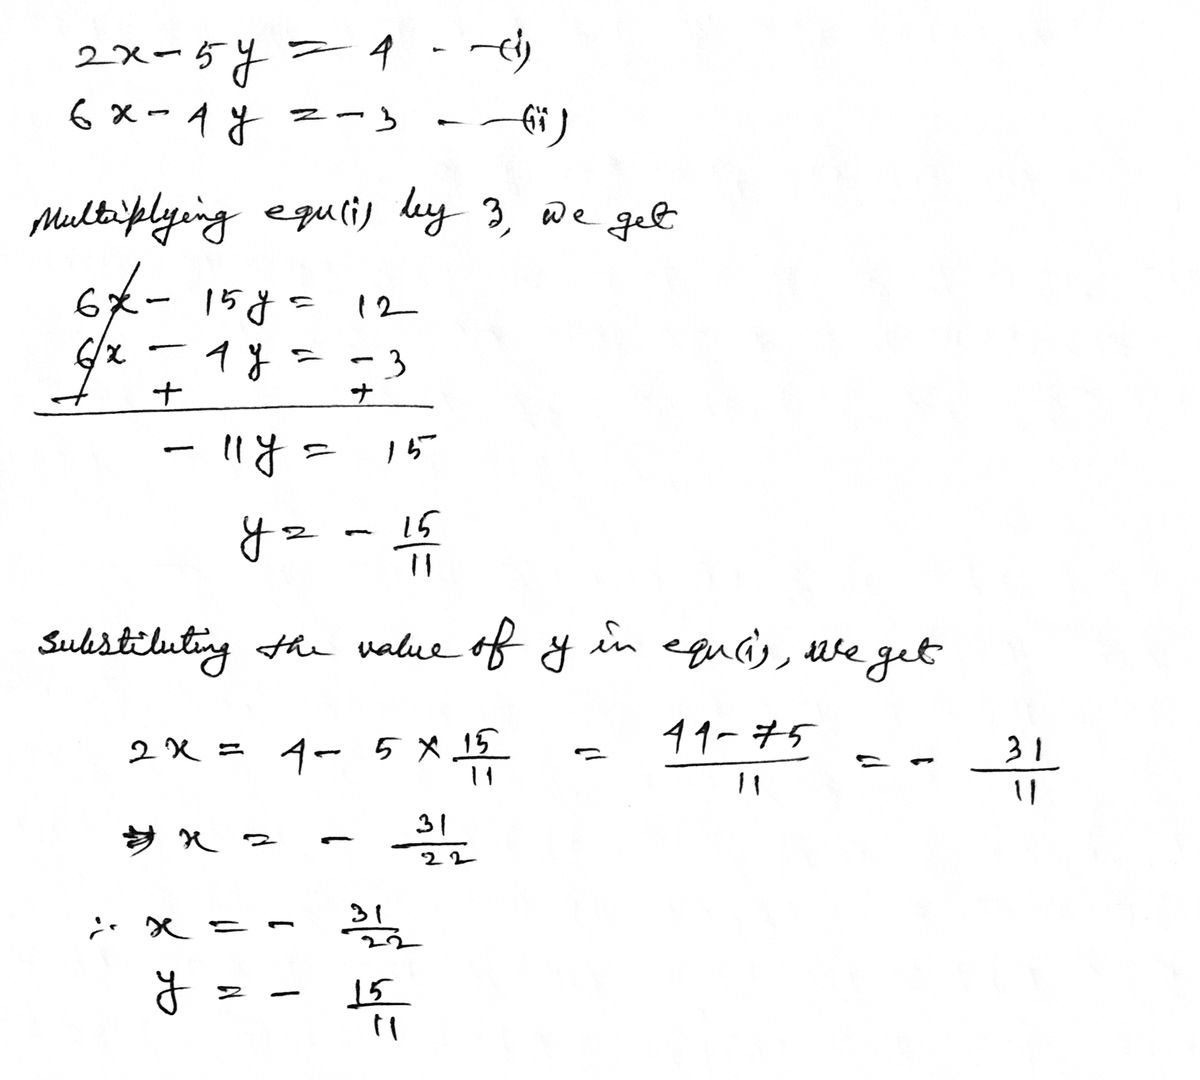 2x - 5y = 4 - - (i)
6x - 4y = -3 - — (ii)
Multiplying equ(i) by 3, we get
6x - 15y = 12
6x - 4y = -3
- + +
- 11y = 15
y = - 15/11
Substituting the value of y in equ(i), we get
2x = 4 - 5 × 15/11 = 44-75/11 = - 31/11
⇒ x = - 31/22
∴ x = - 31/22
y = - 15/11